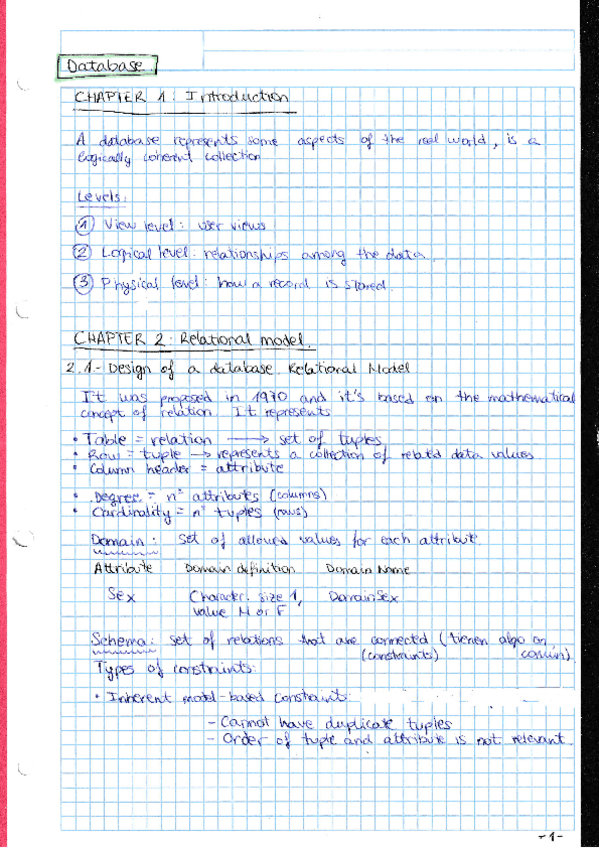 Database.
CHAPTER 1: Introduction
A database represents some aspects of the real world, is a
logically coherent collection
Levels:
① View level: user views
② Logical level: relationships among the data.
③ Physical level: how a record is stored.
CHAPTER 2: Relational model.
2.1.- Design of a database. Relational Model
It was proposed in 1970 and it's based on the mathematical
concept of relation. It represents
• Table = relation → set of tuples
• Row = tuple → represents a collection of related data values
• Column header = attribute
• Degree = nº attributes (columns)
• Cardinality = nº tuples (rows)
Domain: set of allowed values for each attribute.
Attribute Domain definition Domain Name
Sex Charactr. size 1, DomainSex
value M or F
Schema: set of relations that are connected (tienen algo en
(constraints) común)
Types of constraints:
• Inherent model-based constraint:
- Cannot have duplicate tuples
- Order of tuple and attribute is not relevant.
-1-